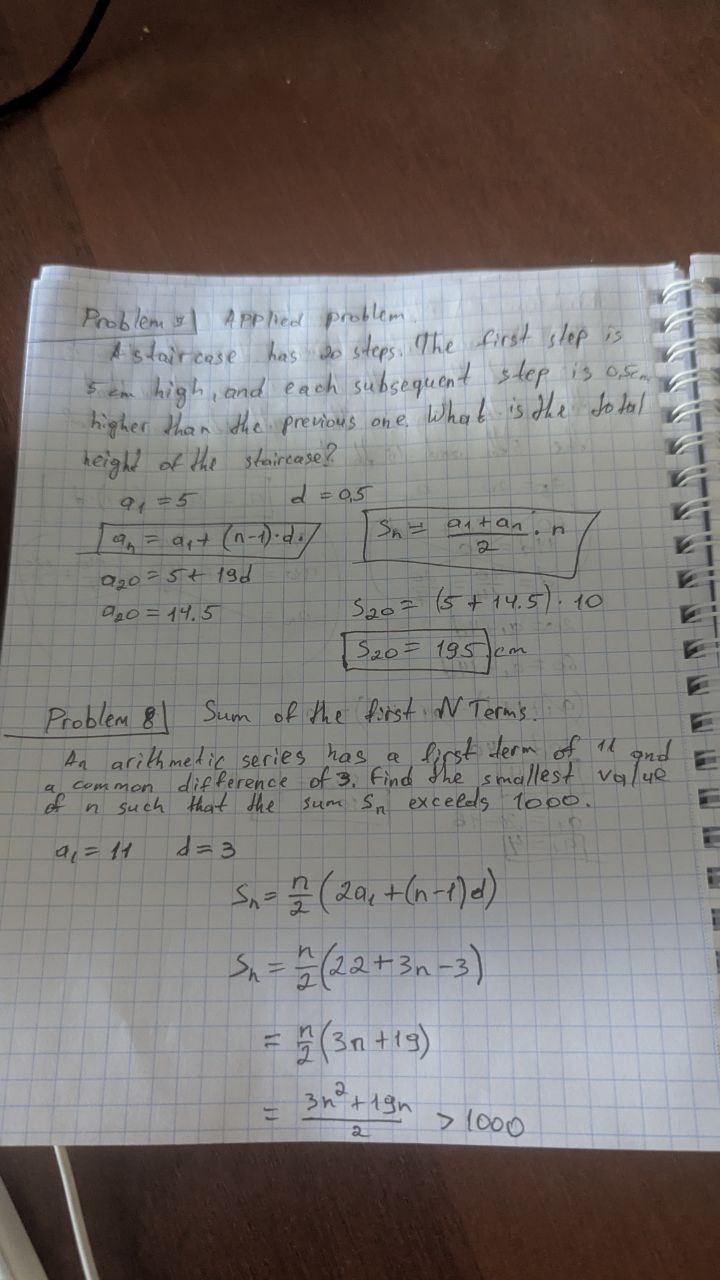 Problem 9| Applied problem.
A staircase has 20 steps. The first step is
5 cm high, and each subsequent step is 0,5cm
higher than the previous one. What is the total
height of the staircase?
a₁ = 5 d = 0,5
aₙ = a₁ + (n-1)·d. Sₙ = (a₁ + aₙ)/2 · n
a₂₀ = 5 + 19d
a₂₀ = 14.5 S₂₀ = (5 + 14.5) · 10
S₂₀ = 195 cm
Problem 8| Sum of the first N Terms.
An arithmetic series has a first term of 11 and
a common difference of 3. Find the smallest value
of n such that the sum Sₙ exceeds 1000.
a₁ = 11 d = 3
Sₙ = n/2 (2a₁ + (n-1)d)
Sₙ = n/2 (22 + 3n - 3)
= n/2 (3n + 19)
= (3n² + 19n)/2 > 1000